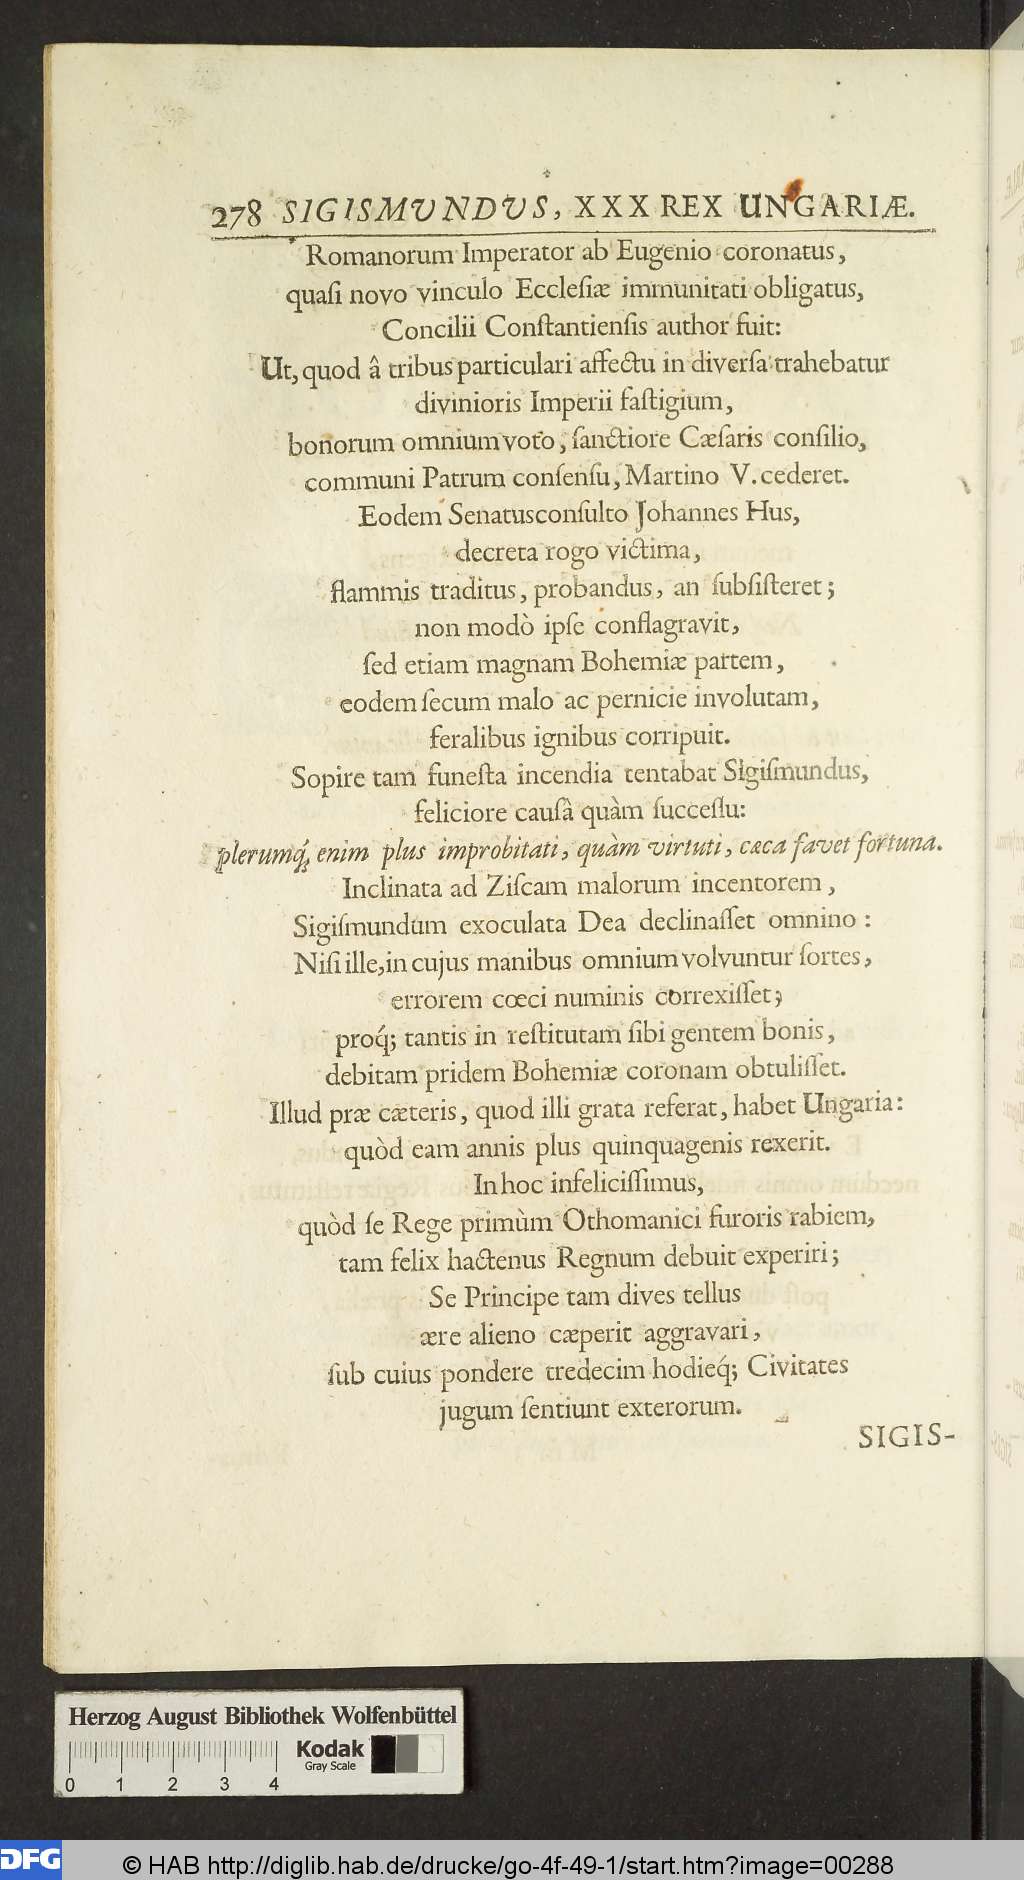 278 SIGISMUNDUS, XXX REX UNGARIÆ.
Romanorum Imperator ab Eugenio coronatus,
quaſi novo vinculo Eccleſiæ immunitati obligatus,
Concilii Conſtantienſis author fuit:
Ut, quod â tribus particulari affectu in diverſa trahebatur
divinioris Imperii faſtigium,
bonorum omnium voto, ſanctiore Cæſaris conſilio,
communi Patrum conſenſu, Martino V. cederet.
Eodem Senatusconſulto Johannes Hus,
decreta rogo victima,
flammis traditus, probandus, an ſubſiſteret;
non modò ipſe conflagravit,
ſed etiam magnam Bohemiæ partem,
eodem ſecum malo ac pernicie involutam,
feralibus ignibus corripuit.
Sopire tam funeſta incendia tentabat Sigiſmundus,
feliciore cauſâ quàm ſucceſſu:
plerumq́; enim plus improbitati, quàm virtuti, cæca favet fortuna.
Inclinata ad Ziſcam malorum incentorem,
Sigiſmundum exoculata Dea declinaſſet omnino:
Niſi ille, in cujus manibus omnium volvuntur ſortes,
errorem cœci numinis correxiſſet;
proq́; tantis in reſtitutam ſibi gentem bonis,
debitam pridem Bohemiæ coronam obtuliſſet.
Illud præ cæteris, quod illi grata referat, habet Ungaria:
quòd eam annis plus quinquagenis rexerit.
In hoc infeliciſſimus,
quòd ſe Rege primùm Othomanici furoris rabiem,
tam felix hactenus Regnum debuit experiri;
Se Principe tam dives tellus
ære alieno cæperit aggravari,
ſub cuius pondere tredecim hodieq́; Civitates
jugum ſentiunt exterorum.
SIGIS-
Herzog August Bibliothek Wolfenbüttel
Kodak
Gray Scale
0 1 2 3 4
DFG
© HAB http://diglib.hab.de/drucke/go-4f-49-1/start.htm?image=00288